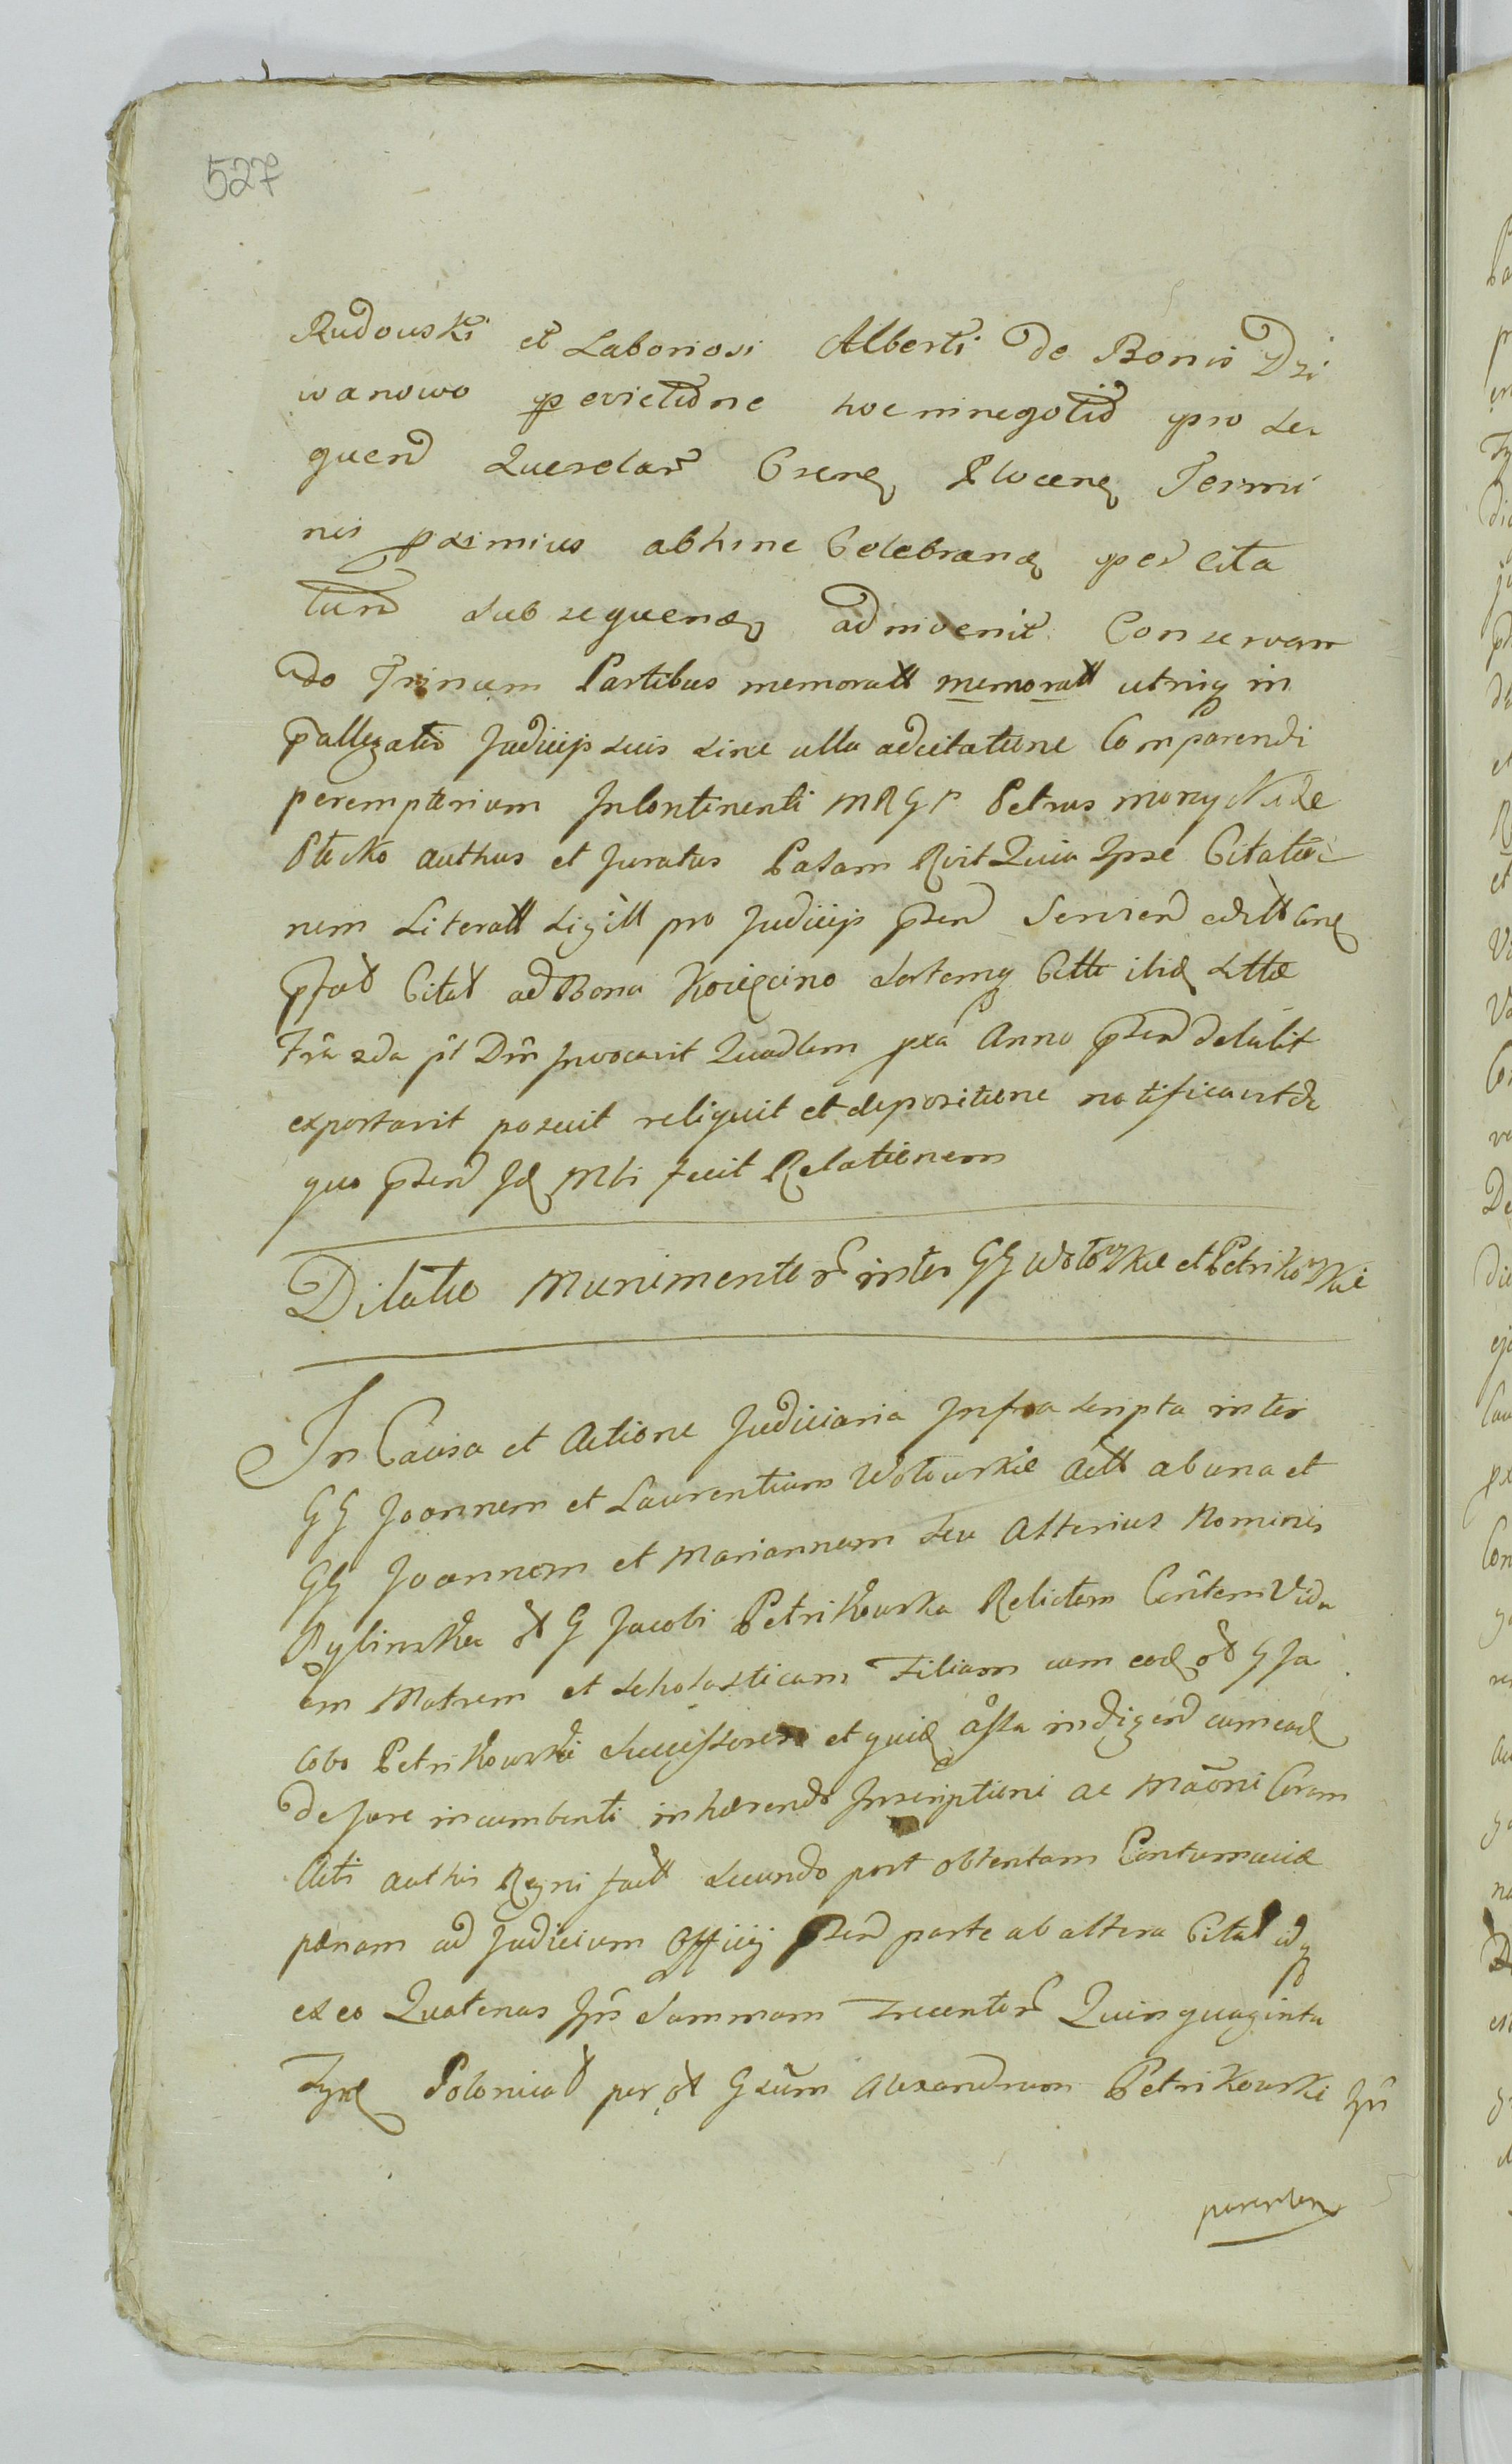 527
Rudouski et Laboriosi Alberti de Bonis Dzi
wanowo p evictione hoc in negotio pro se
quend Querelar Csren Plocen Termi
nis pximius abhinc Celebrand per cita
tum subsequend admvenit Conservan
do Trinum Partibus memoratt memoratt utriq in
pallegatis Judicijs suis sine ulla adcitatione Comparendi
peremptorium Incontinenti MRGr Petrus
authus et Juratus Palam Rvit Quia Ipse Citatio
nem Literatt Sigill pro Judicijs psend Serviend editt
pfat Citat ad Bona Kosiecino Citt ibid
Fria 2da pt Dm Invocavit Quadlem pxa Anno psend detulit
exportavit posuit reliquit et depositione notificavit de
quo psend Jd Mtri fecit Relationem
Dilatio Munimentor inter GG Wotowskie et Petrikowskie
In Causa et Actione Judiciaria Infra scripta inter
GG Joannem et Laurentium Wotowskie Actt ab una et
GG Joannem et Mariannam seu Alterius Nominis
Rylinska ot G Jacobi Petrikowska Relictam Cntem Vidu
am Matrem et Scholasticam Filiam cum eod ot G Ja
cobo Petrikowski Successores et quid assa indigend cum ead
de Jure incumbenti inhaerendo Inscriptioni ac Maoni Coram
Actis authis Regni fatt secundo post obtentam Contumaciae
paenam ad Judicium Officij psend parte ab altera Citat idq
ex eo Quatenus Ipsi Summam Trecentor Quinquaginta
Tynf Polonicat per ot Gsum Alexandrum Petrikowski Ipsi
parentem